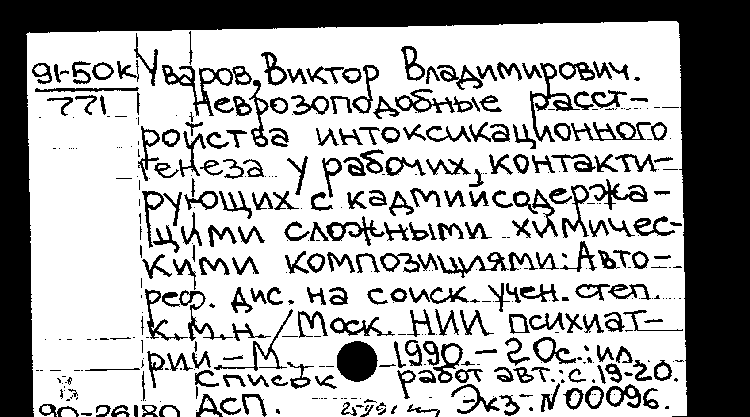 91-50к Уваров, Виктор Владимирович.
771 Неврозоподобные расст-
ройства интоксикационного
генеза у рабочих, контакти-
рующих с кадмийсодержа-
щими сложными химичес-
кими композициями: Авто-
реф. дис. на соиск. учен. степ.
к.м.н. / Моск. НИИ психиат-
рии. - М., 1990. - 20с.: ил.
Список работ авт.: с. 19-20.
В
90-26180 АСП. Экз. N 00096.